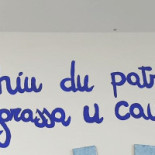 hiu du patr
grassa u cav